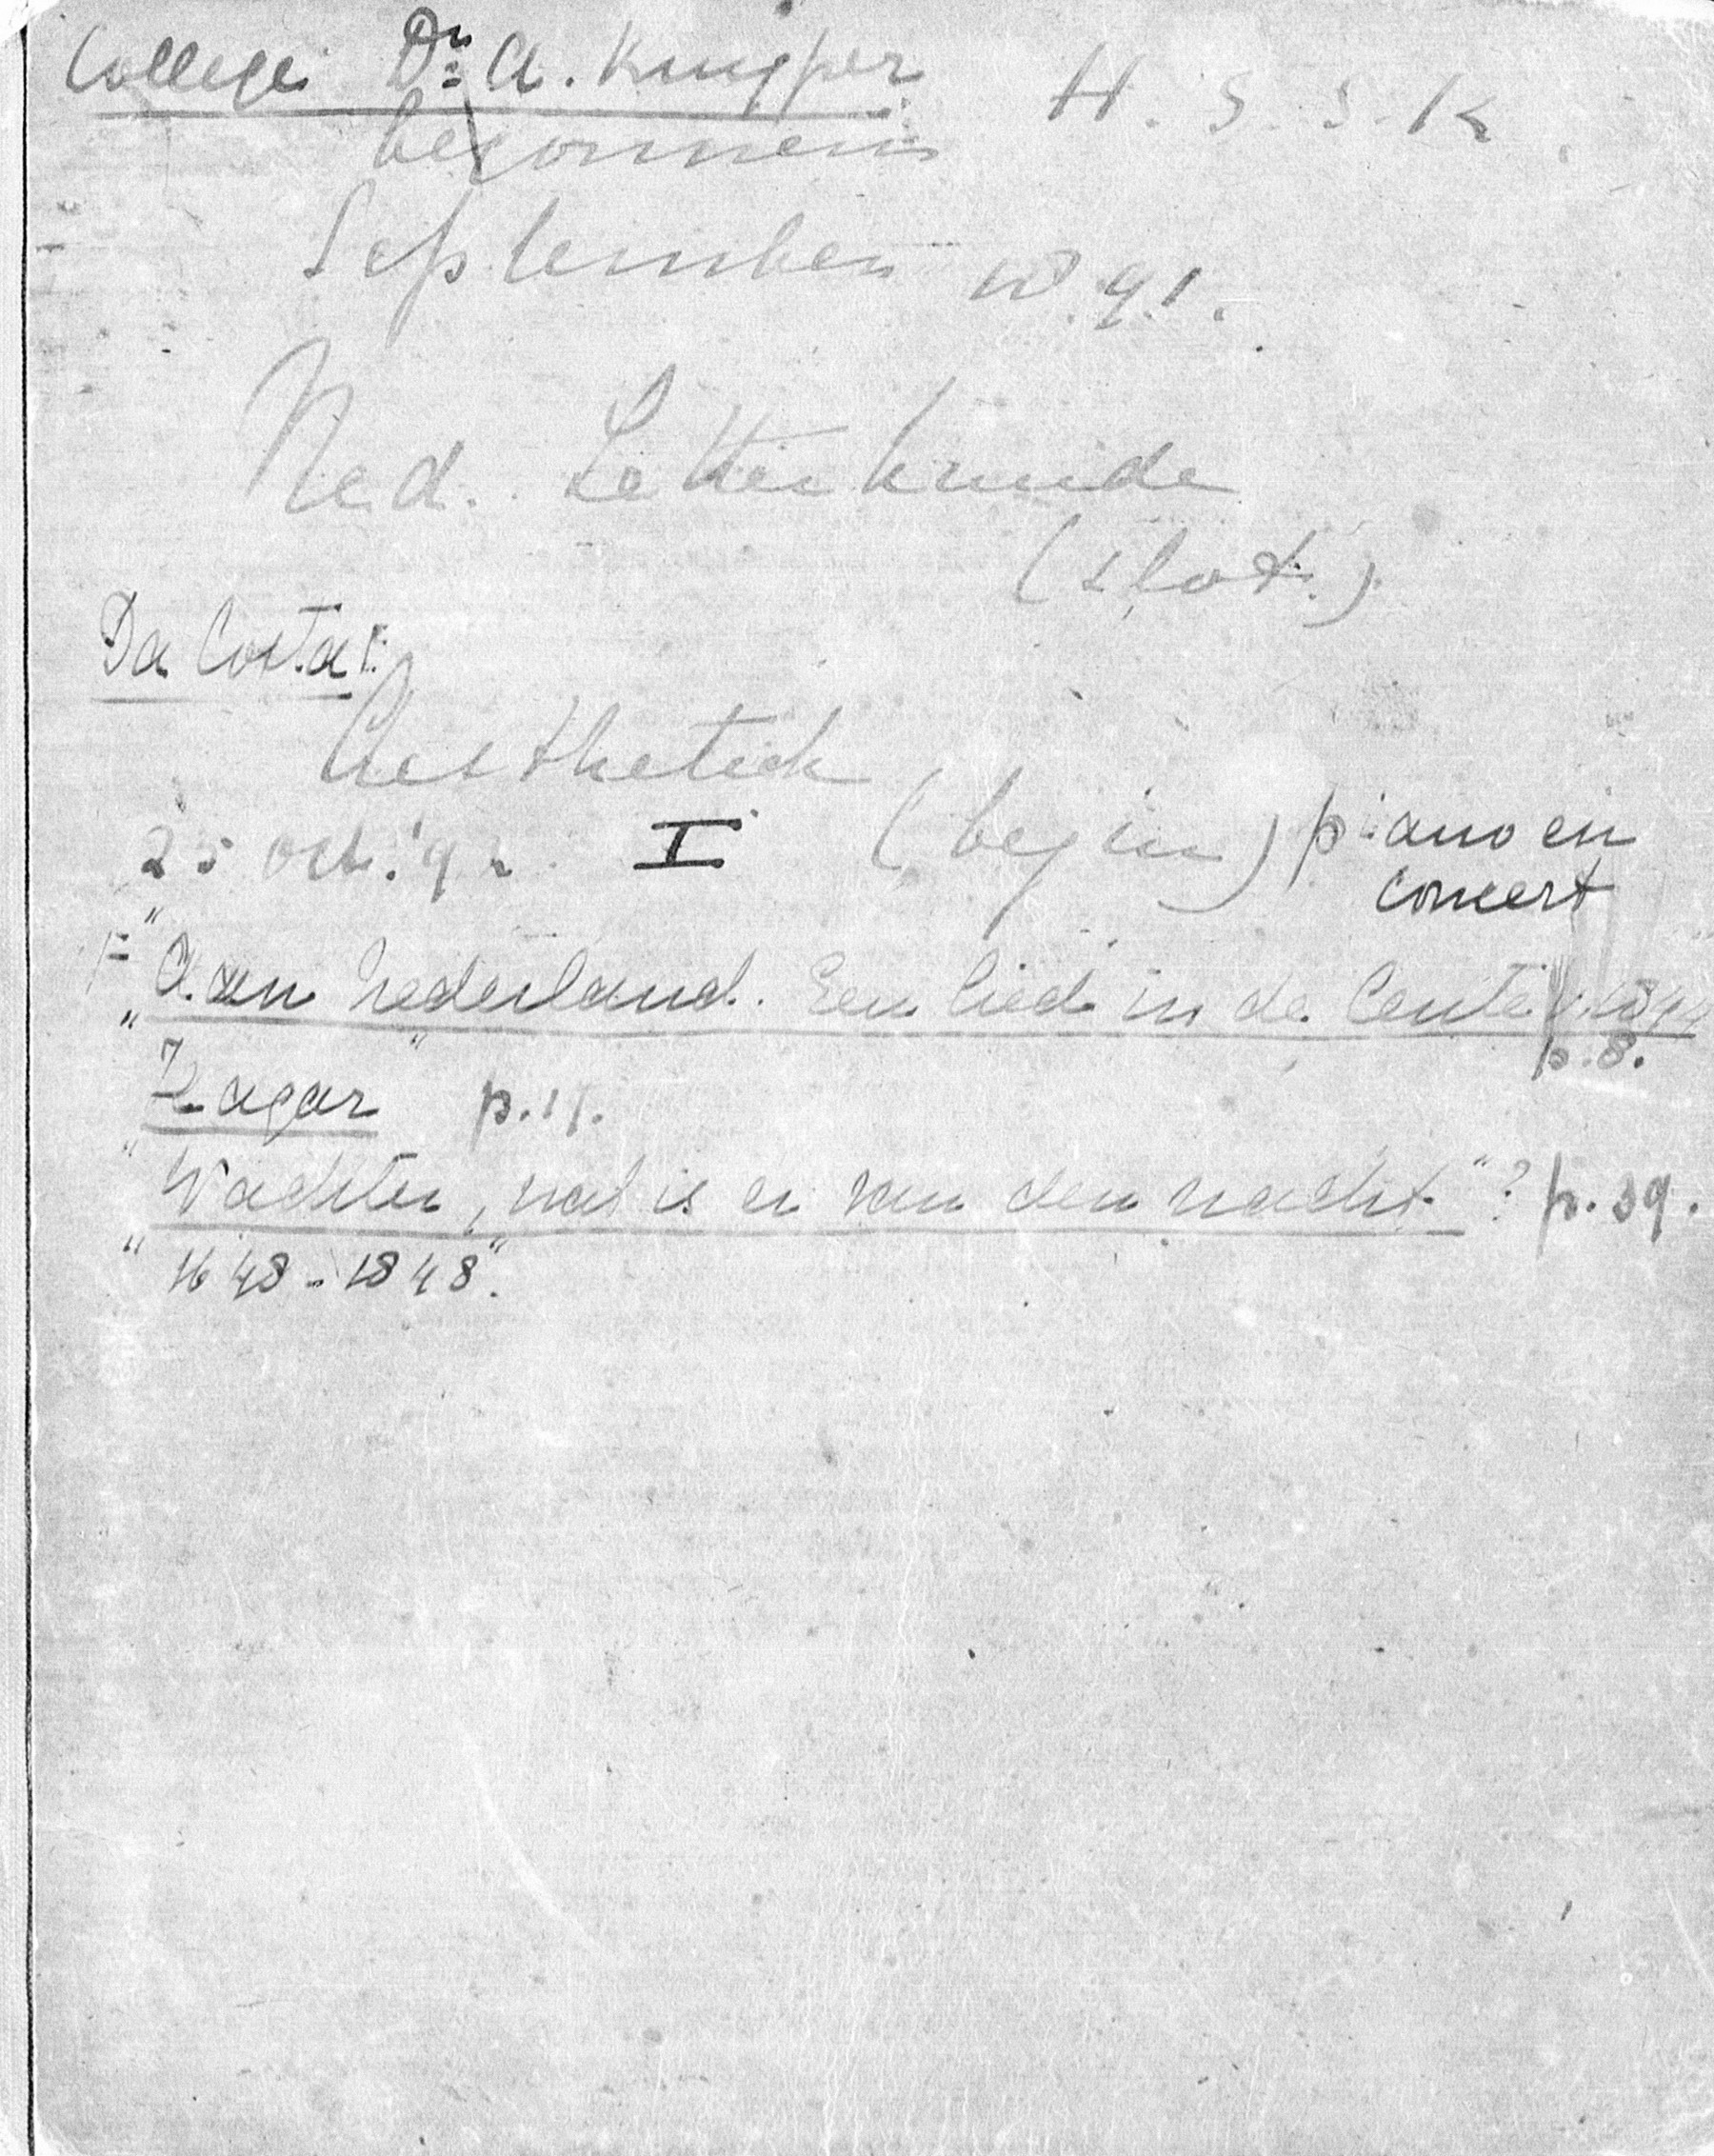 College Dr. A. Kuyper H. S. S. K.
begonnen
September 1891.
Ned. Letterkunde
(slot.)
Da Costa:
Aesthetick
25 Oct. '92 I (begin) piano en
concert
"Aan Nederland. Een lied in de Lente" v. 1844
p. 8.
"Hagar" p. 17.
"Wachter, wat is er van den nacht"? p. 39.
"1648-1848".